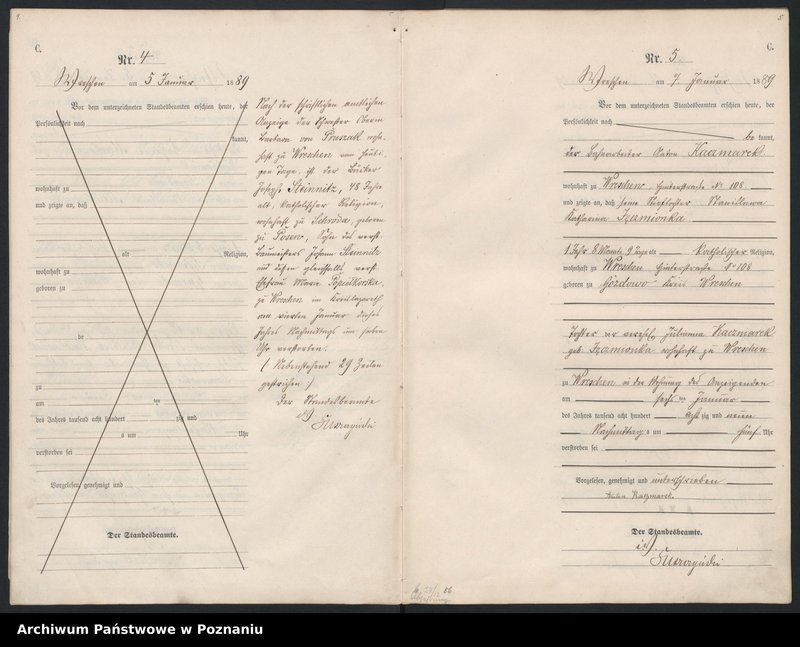 C.
Nr. 4
Wreschen am 5 Januar 1889
Vor dem unterzeichneten Standesbeamten erschien heute, der
Persönlichkeit nach
kannt,
wohnhaft zu
und zeigte an, daß
alt Religion,
wohnhaft zu
geboren zu
de
zu
am ten
des Jahres tausend acht hundert zig und
um Uhr
verstorben sei
Vorgelesen, genehmigt und
Der Standesbeamte.
Nach der schriftlichen amtlichen
Anzeige der Schwester Oberin
Barbara von Pruszak wohn-
haft zu Wreschen vom heuti-
gen Tage, ist der
Joseph Steinnitz, 48 Jahre
alt, katholischer Religion,
wohnhaft zu Schroda, geboren
zu Posen, Sohn des verst.
Baumeisters Johann
und dessen gleichfalls verst.
Ehefrau Marie
zu Wreschen im Kreislazareth
am vierten Januar dieses
Jahres Nachmittags um sieben
Uhr verstorben.
(Nebenstehend 29 Zeilen
gestrichen:)
Der Standesbeamte
C.
Nr. 5
Wreschen am 7. Januar 1889
Vor dem unterzeichneten Standesbeamten erschien heute, der
Persönlichkeit nach
be kannt,
der Bahnarbeiter Anton Kaczmarek
wohnhaft zu Wreschen, Hinterstraße No 108
und zeigte an, daß seine Stieftochter Stanislawa
Katharina Szamionka
1 Jahr 8 Monate 9 Tage alt katholischer Religion,
wohnhaft zu Wreschen Hinterstraße No 108
geboren zu Gozdowo Kreis Wreschen
Tochter der verehel. Julianna Kaczmarek
geb. Szamionka wohnhaft zu Wreschen
zu Wreschen in der Wohnung des Anzeigenden
am sechsten Januar
des Jahres tausend acht hundert achtzig und neun
Nachmittags um fünf Uhr
verstorben sei
Vorgelesen, genehmigt und unterschrieben
Anton Kaczmarek.
Der Standesbeamte.
Archiwum Państwowe w Poznaniu